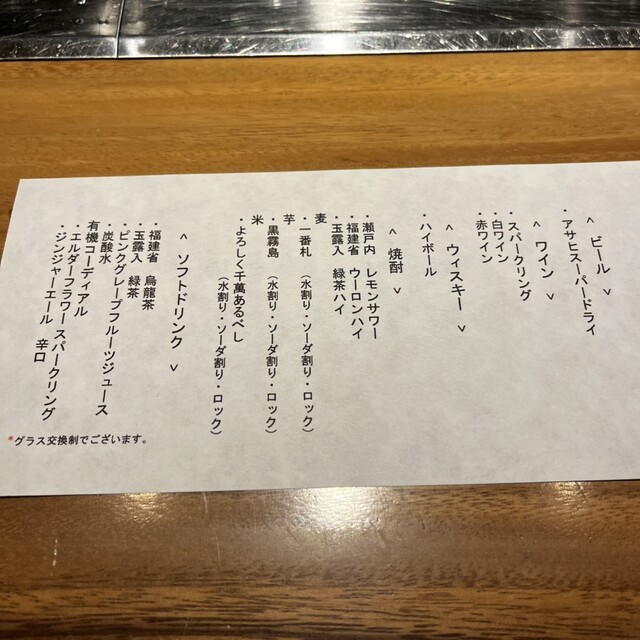 ＜ ビール ＞
・アサヒスーパードライ
＜ ワイン ＞
・スパークリング
・白ワイン
・赤ワイン
＜ ウィスキー ＞
・ハイボール
＜ 焼酎 ＞
・瀬戸内 レモンサワー
・福建省 ウーロンハイ
・玉露入 緑茶ハイ
麦
・一番札 （水割り・ソーダ割り・ロック）
芋
・黒霧島 （水割り・ソーダ割り・ロック）
米
・よろしく千萬あるべし
（水割り・ソーダ割り・ロック）
＜ ソフトドリンク ＞
・福建省 烏龍茶
・玉露入 緑茶
・ピンクグレープフルーツジュース
・炭酸水
有機コーディアル
・エルダーフラワースパークリング
・ジンジャーエール 辛口
*グラス交換制でございます。